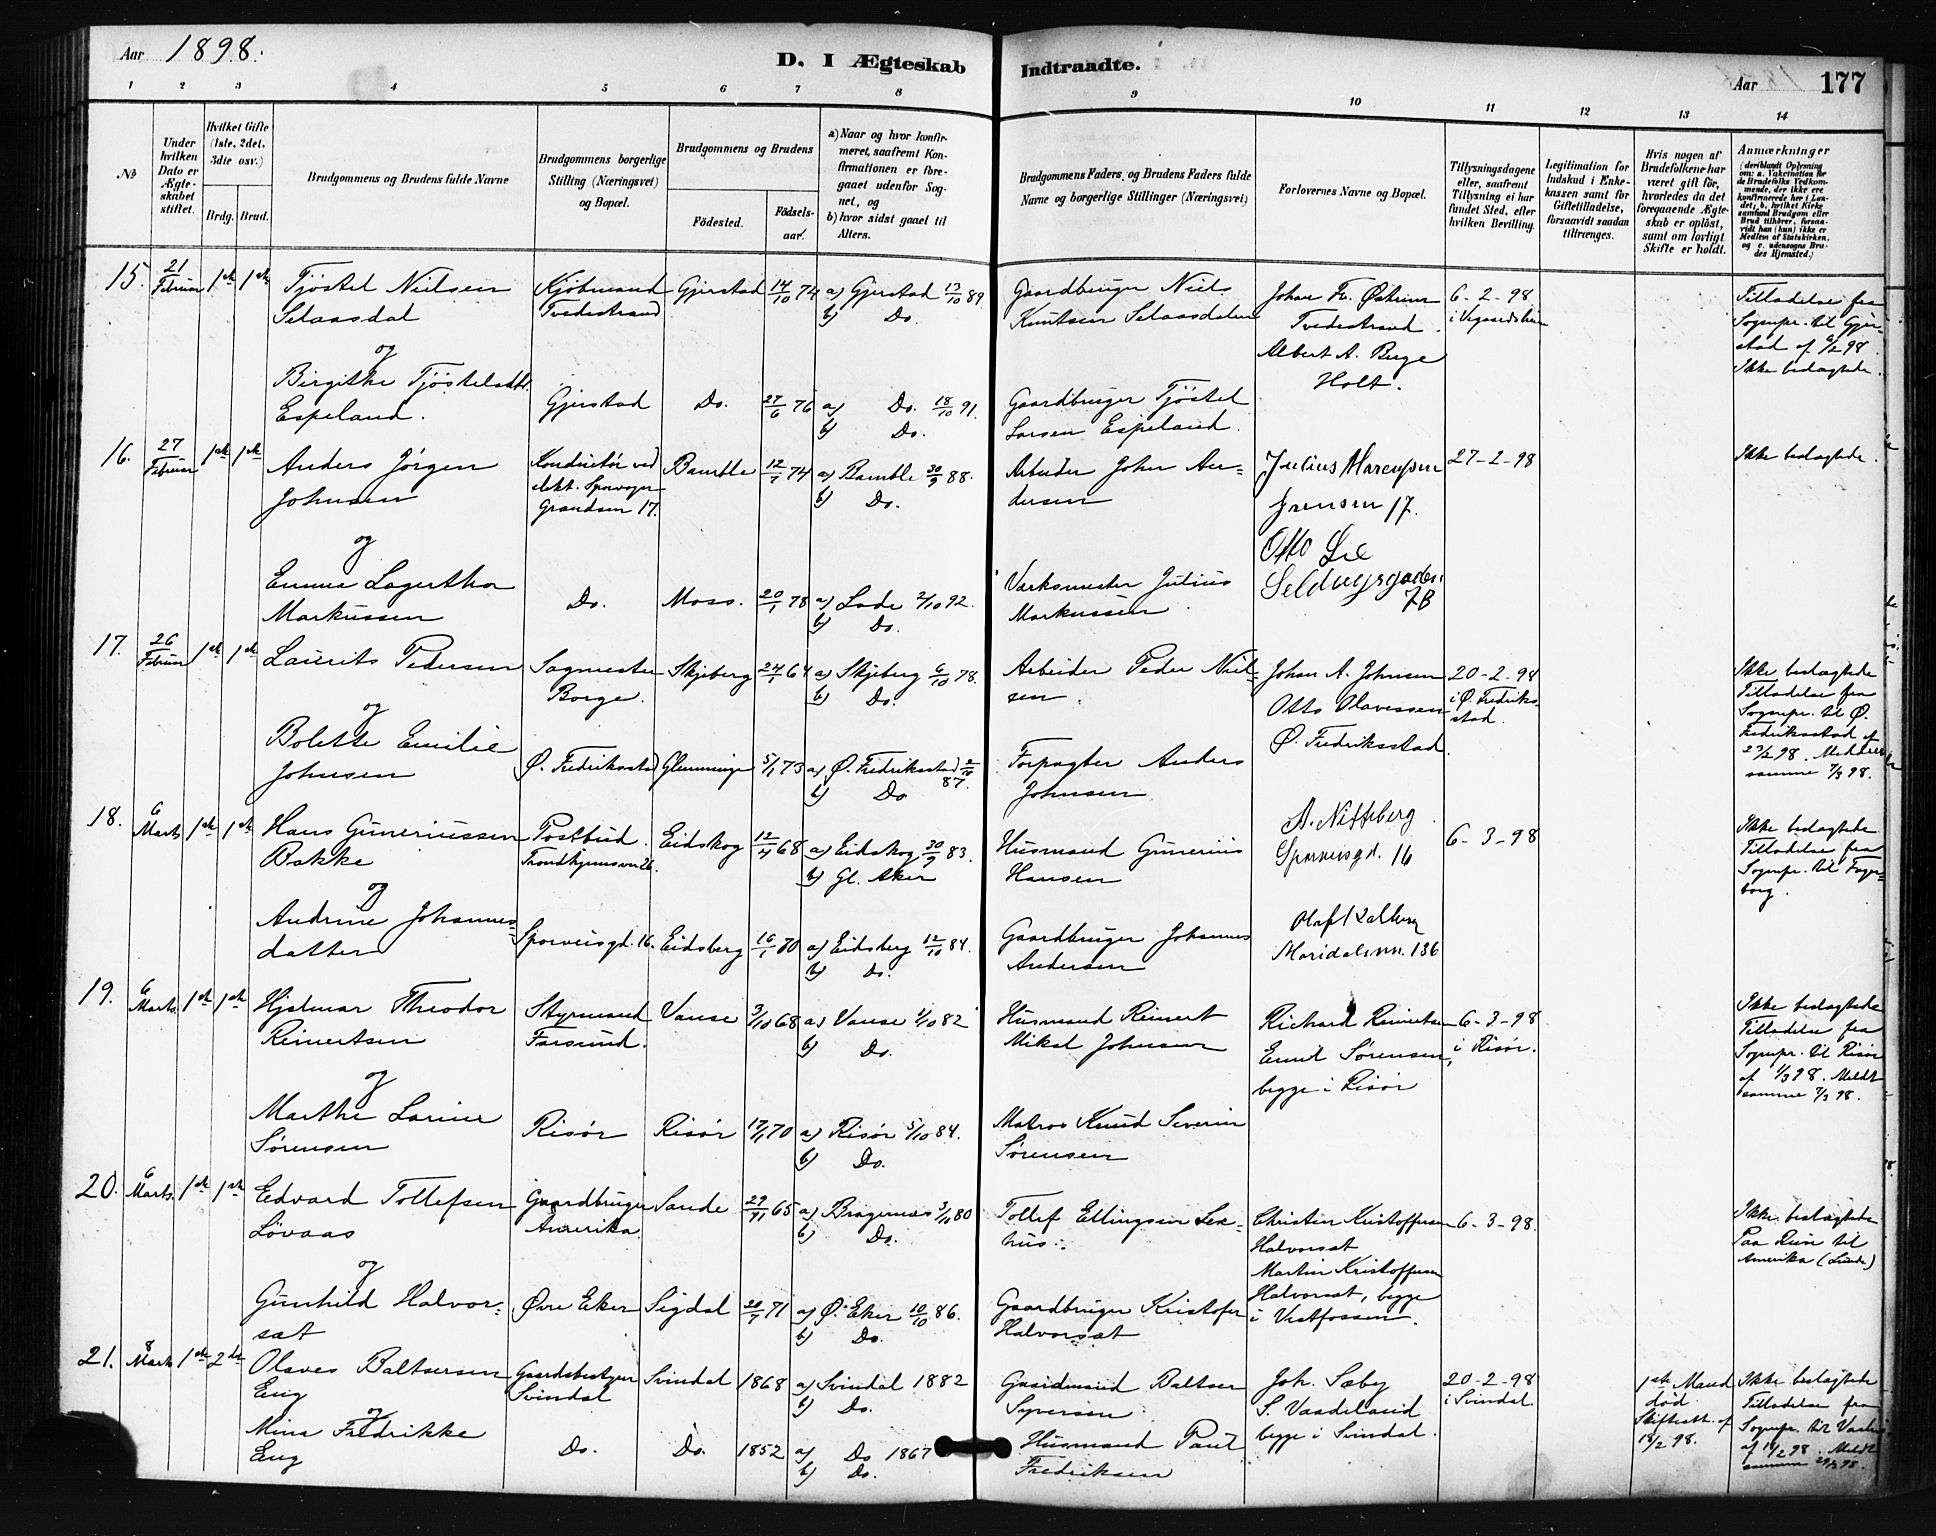 Aar 1898.
D. I Ægteskab Indtraadte.
Aar 177
1 2 3 4 5 6 7 8 9 10 11 12 13 14
№
Under hvilken Dato er Ægteskabet stiftet.
Hvilket Gifte (1ste, 2det, 3die osv.)
Brdg. Brud.
Brudgommens og Brudens fulde Navne
Brudgommens borgerlige Stilling (Næringsvei) og Bopæl.
Brudgommens og Brudens
Födested. Födselsaar.
a) Naar og hvor konfirmeret, saafremt Konfirmationen er foregaaet udenfor Sognet, og
b) hvor sidst gaaet til Alters.
Brudgommens Faders og Brudens Faders fulde Navne og borgerlige Stillinger (Næringsvei)
Forlovernes Navne og Bopæl.
Tillysningsdagene eller, saafremt Tillysning ei har fundet Sted, efter hvilken Bevilling.
Legitimation for Indskud i Enkekassen samt for Giftetilladelse, forsaavidt saadan tiltrænges.
Hvis nogen af Brudefolkene har været gift för, hvorledes da det foregaaende Ægteskab er oplöst, samt om lovligt Skifte er holdt.
Anmærkninger
(deriblandt Oplysning om: a. Vaksination for de Brudefolks Vedkommende, der ikke ere konfirmerede her i Landet; b. hvilket Kirkesamfund Brudgom eller Brud tilhörer, forsaavidt han (hun) ikke er Medlem af Statskirken, og c. udensogns Brudes Hjemsted.)
15. 21/Februar 1ste 1ste Tjöstel Nielsen Selaasdal
Kjöbmand Tvedestrand Gjerstad 14/10 74 a) Gjerstad 13/10 89. b) Do.
Gaardbruger Niels Knutsen Selaasdalen
Johan Fr. Tvedestrand
Albert A. Berge Holt.
6-2-98 i Vegaardsheien
Tilladelse fra Sognepr. til Gjerstad af 6/2 98. Ikke beslægtede.
og
Birgithe Tjöstelsdtr. Espeland.
Gjerstad Do. 27/6 76 a) Do. 18/10 91. b) Do.
Gaardbruger Tjöstel Larsen Espeland.
16. 27/Februar 1ste 1ste Anders Jörgen Johnsen
Konduktör ved elekt. Sporveger Grændsen 17.
Bamble 12/1 74 a) Bamble 30/9 88. b) Do.
Arbeider John Andersen
Julius Marcussen Grensen 17.
Otto Lie 7B
27-2-98
Ikke beslægtede.
og
Emma Lagertha Markussen
Do. Moss. 20/1 78 a) Lade 2/10 92. b) Do.
Værksmester Julius Markussen
17. 26/Februar 1ste 1ste Laurits Pedersen
Sagmester Borge. Skjeberg 24/1 64 a) Skjeberg 6/10 78. b) Do.
Arbeider Peder Nielsen
Johan A. Johnsen
Otto Olavessen
Ø. Fredriksstad.
20-2-98 i Ø. Fredriksstad.
Ikke beslægtede Tilladelse fra Sognepr. til Ø. Fredriksstad af 23/2 98. Meldt samme 7/3 98.
og
Bolette Emilie Johnsen
Ø. Fredriksstad Glemminge 5/1 73 a) Ø. Fredriksstad 2/10 87. b) Do
Forpagter Anders Johnsen
18. 6 Marts 1ste 1ste Hans Guneriussen Bakke
Postbud. Trondhjemsvn 26. Eidskog 12/4 68 a) Eidskog 30/9 83. b) Gl. Aker
Husmand Gunerius Hansen
A. Nitteberg Sporveisgd. 16
6-3-98
Ikke beslægtede Tilladelse fra Sognepr. til Fagerborg.
og
Andrine Johannesdatter
Sporveisgd. 16. Eidsberg 16/1 70 a) Eidsberg 12/10 84. b) Do.
Gaardbruger Johannes Andersen
Olaf
Maridalsvn. 136
19. 6 Marts. 1ste 1ste Hjalmar Theodor Reinertsen
Styrmand Farsund. Vanse 3/10 68 a) Vanse 1/10 82 b) Do.
Husmand Reinert Mikal Johnsen
Richard Reinertsen
Emil Sörensen, begge i Risör
6-3-98 i Risör.
Ikke beslægtede Tilladelse fra Sognepr. til Risör af 1/3 98. Meldt samme 7/3 98.
og
Marthe Larine Sörensen
Risör Risör 17/1 70 a) Risör 5/10 84. b) Do.
Matros Knud Severin Sörensen
20. 6 Marts. 1ste 1ste Edvard Tollefsen Lövaas
Gaardbruger Amerika Sande 29/11 65 a) Bragernes 3/10 80 b) Do.
Tollef Ellingsen
Christen Kristoffersen Halvorsat
Martin Kristoffersen Halvorsat, begge i Vestfossen.
6-3-98.
Ikke beslægtede Paa Reise til Amerika
og
Gunhild Halvorsat
Øvre Eker Sigdal 20/1 71 a) Ø. Eker 10/10 86. b) Do.
Gaardbruger Kristofer Halvorsat
21. 8 Marts 1ste 2det Olaves Baltsersen Eng
Gaardsbestyrer Svindal Svindal 1868 a) Svindal 1882 b) Do.
Gaardmand Baltser Syversen
Joh. Sæby
S. Vaadeland begge i Svindal.
20-2-98 i Svindal.
1ste Mand död. Skifteatt. af 18/2 98.
Ikke beslægtede Tilladelse fra Sognepr. til Vaaler af 18/2 98. Meldt samme 29/3 98.
og
Mina Fredrikke Eng
Do. Do. 1852 a) Do 1867 b) Do.
Husmand Paul Fredriksen